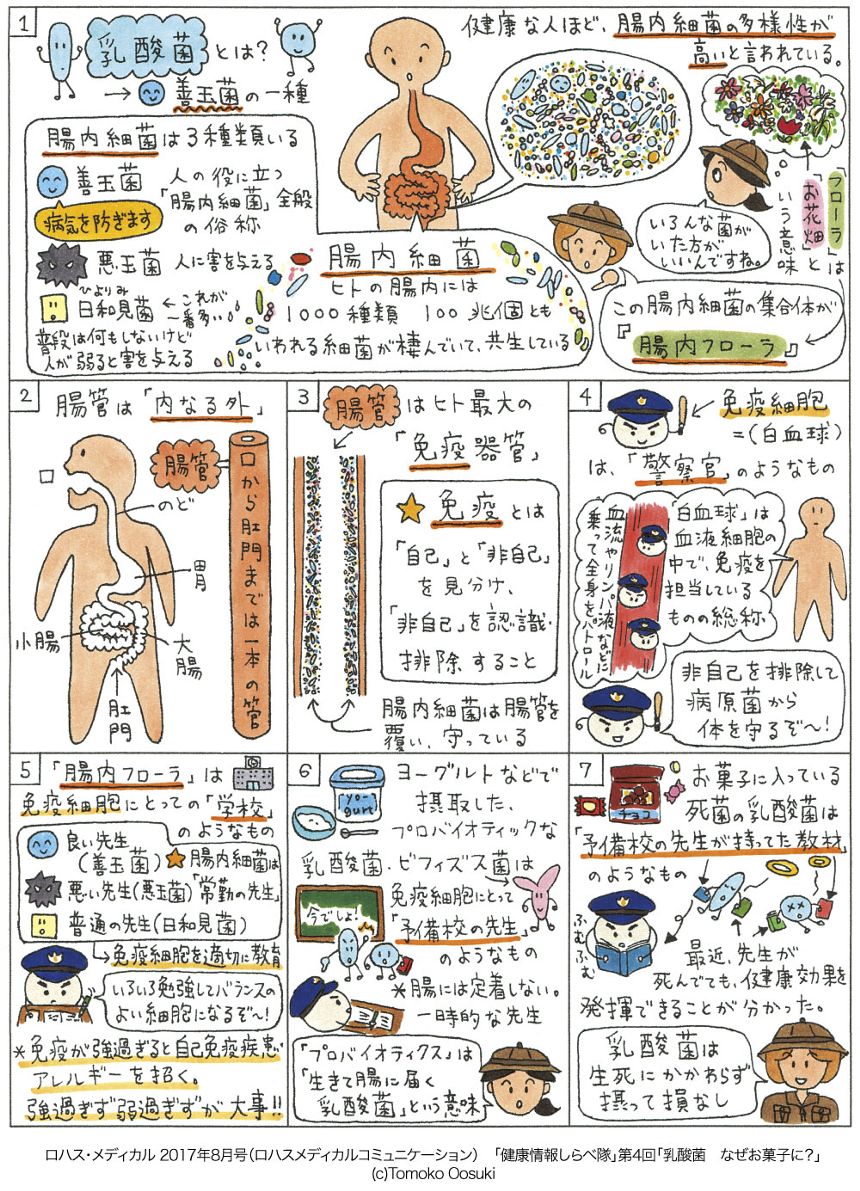 1
乳酸菌とは?
→善玉菌の一種
健康な人ほど、腸内細菌の多様性が
高いと言われている。
腸内細菌は3種類いる
善玉菌 人の役に立つ
「腸内細菌」全般
の俗称
病気を防ぎます
悪玉菌 人に害を与える
ひよりみ
日和見菌 ←これが
一番多い!
普段は何もしないけど
人が弱ると害を与える
腸内細菌
ヒトの腸内には
1000種類 100兆個とも
いわれる細菌が棲んでいて、共生している
いろんな菌が
いた方が
いいんですね。
「フローラ」は
「お花畑」と
いう意味
この腸内細菌の集合体が
『腸内フローラ』
2
腸管は「内なる外」
口
のど
胃
小腸
大腸
肛門
腸管
口から肛門までは一本の管
3
腸管はヒト最大の
「免疫器管」
免疫とは
「自己」と「非自己」
を見分け、
「非自己」を認識・
排除すること
腸内細菌は腸管を
覆い、守っている
4
免疫細胞
=(白血球)
は、「警察官」のようなもの
「白血球」は
血液細胞の
中で、免疫を
担当している
ものの総称
血流やリンパ液などに
乗って全身をパトロール
非自己を排除して
病原菌から
体を守るぞ〜!
5
「腸内フローラ」は
免疫細胞にとっての「学校」
のようなもの
良い先生
(善玉菌)
悪い先生(悪玉菌)
普通の先生(日和見菌)
腸内細菌は
「常勤の先生」
→免疫細胞を適切に教育
いろいろ勉強してバランスの
よい細胞になるぞ〜!
*免疫が強過ぎると自己免疫疾患
アレルギーを招く。
強過ぎず弱過ぎずが大事!!
6
yogurt
ヨーグルトなどで
摂取した、
プロバイオティックな
乳酸菌・ビフィズス菌は
免疫細胞にとって
「予備校の先生」
のようなもの
今でしょ!
*腸には定着しない。
一時的な先生
「プロバイオティクス」は
「生きて腸に届く
乳酸菌」という意味
7
チョコ
お菓子に入っている
死菌の乳酸菌は
「予備校の先生が持ってた教材」
のようなもの
ふむふむ
最近、先生が
死んでても、健康効果を
発揮できることが分かった。
乳酸菌は
生死にかかわらず
摂って損なし
ロハス・メディカル 2017年8月号(ロハスメディカルコミュニケーション) 「健康情報しらべ隊」第4回「乳酸菌 なぜお菓子に?」
(c)Tomoko Oosuki